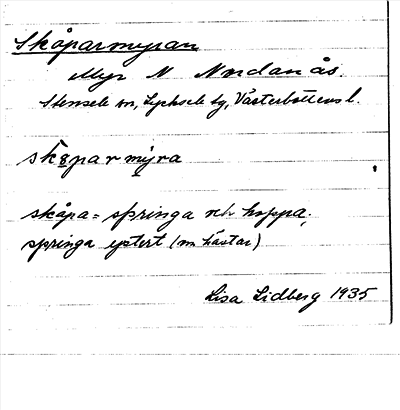 Skåparmyran
Myr N Nordanås.
Stensele sn, Lycksele tg, Västerbottens l.
skåparmyra
skåpa = springa och hoppa;
springa ystert (om hästar)
Lisa Lidberg 1935